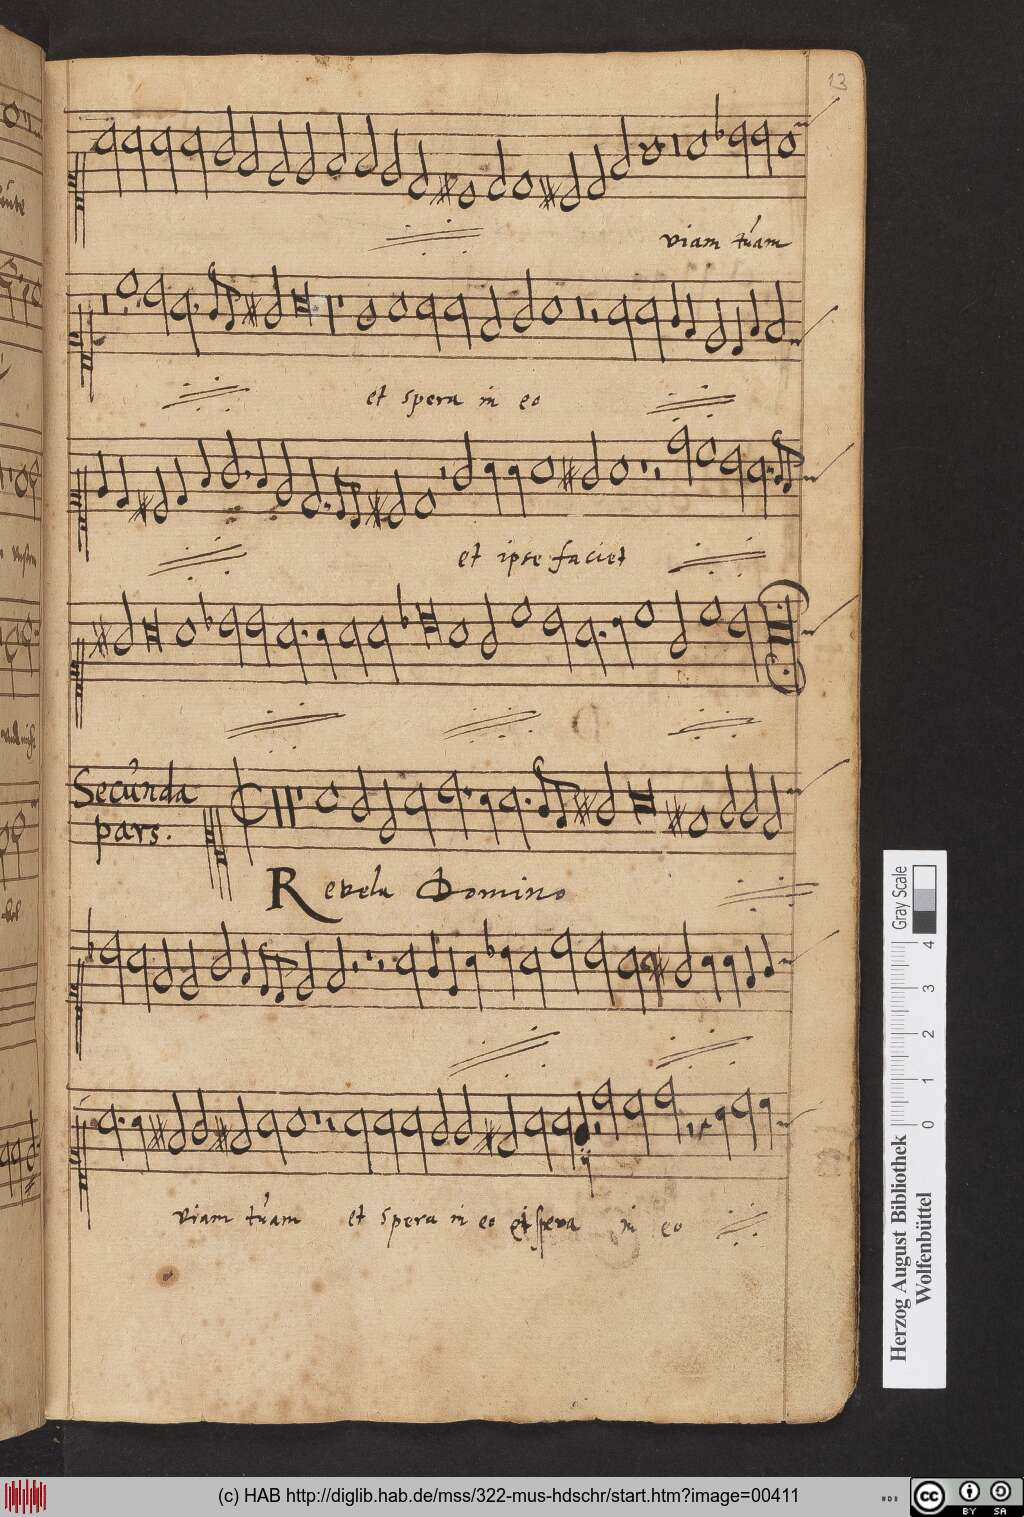 13
viam tuam
et spera in eo
et ipse faciet
Secunda
pars.
Revela Domino
viam tuam et spera in eo et spera in eo
Gray Scale
0 1 2 3 4
Herzog August Bibliothek
Wolfenbüttel
(c) HAB http://diglib.hab.de/mss/322-mus-hdschr/start.htm?image=00411
cc BY SA